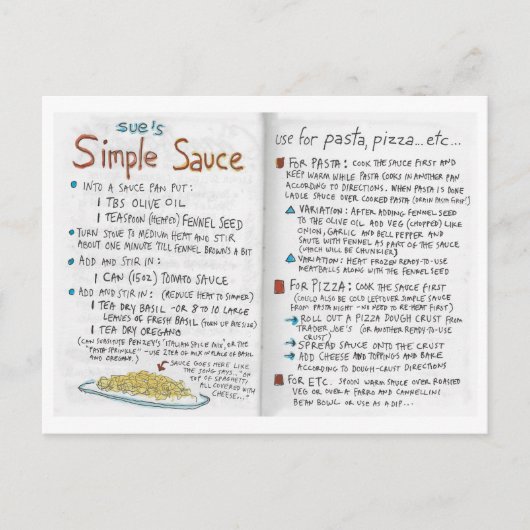 sue's
Simple Sauce
INTO A SAUCE PAN PUT:
1 TBS OLIVE OIL
1 TEASPOON (HEAPED) FENNEL SEED
TURN STOVE TO MEDIUM HEAT AND STIR
ABOUT ONE MINUTE TILL FENNEL BROWNS A BIT
ADD AND STIR IN:
1 CAN (15oz) TOMATO SAUCE
ADD AND STIR IN: (REDUCE HEAT TO SIMMER)
1 TEA DRY BASIL -OR 8 TO 10 LARGE
LEAVES OF FRESH BASIL (TORN UP BITE SIZE)
1 TEA DRY OREGANO
(CAN SUBSTITUTE PENZEY'S "ITALIAN SPICE MIX" OR THE
"PASTA SPRINKLE" - USE 2 TEA OF MIX IN PLACE OF BASIL
AND OREGANO.)
SAUCE GOES HERE LIKE
THE SONG SAYS... "ON
TOP OF SPAGHETTI
ALL COVERED WITH
CHEESE..."
use for pasta, pizza... etc...
FOR PASTA: COOK THE SAUCE FIRST AND
KEEP WARM WHILE PASTA COOKS IN ANOTHER PAN
ACCORDING TO DIRECTIONS. WHEN PASTA IS DONE
LADLE SAUCE OVER COOKED PASTA (DRAIN PASTA FIRST!)
VARIATION: AFTER ADDING FENNEL SEED
TO THE OLIVE OIL ADD VEG (CHOPPED) LIKE
ONION, GARLIC AND BELL PEPPER AND
SAUTE WITH FENNEL AS PART OF THE SAUCE
(WHICH WILL BE CHUNKIER)
VARIATION: HEAT FROZEN READY-TO-USE
MEATBALLS ALONG WITH THE FENNEL SEED
FOR PIZZA: COOK THE SAUCE FIRST
(COULD ALSO BE COLD LEFTOVER SIMPLE SAUCE
FROM PASTA NIGHT - NO NEED TO RE-HEAT FIRST)
ROLL OUT A PIZZA DOUGH CRUST FROM
TRADER JOE'S (OR ANOTHER READY-TO-USE
CRUST)
SPREAD SAUCE ONTO THE CRUST
ADD CHEESE AND TOPPINGS AND BAKE
ACCORDING TO DOUGH-CRUST DIRECTIONS
FOR ETC. SPOON WARM SAUCE OVER ROASTED
VEG OR OVER A FARRO AND CANNELLINI
BEAN BOWL OR USE AS A DIP...